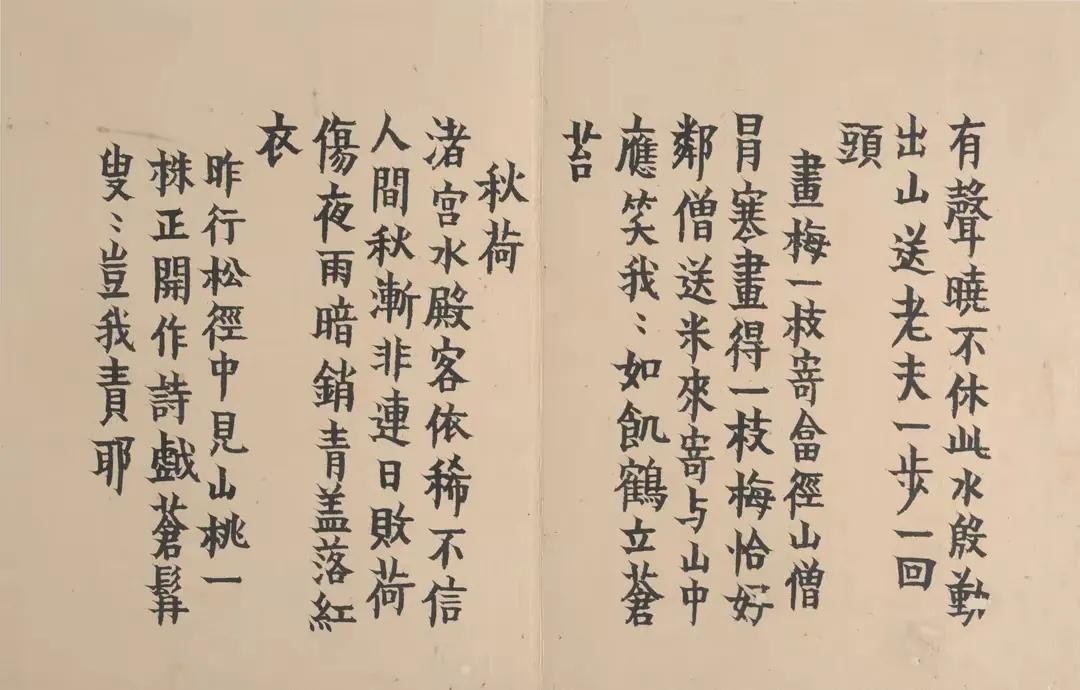 有聲曉不休此水殷勤
出山送老夫一步一回
頭
畫梅一枝寄畣徑山僧
冒寒畫得一枝梅恰好
鄰僧送米來寄与山中
應笑我〻如飢鶴立蒼
苔
秋荷
渚宮水殿客依稀不信
人間秋漸非連日敗荷
傷夜雨暗銷青盖落紅
衣
昨行松徑中見山桃一
株正開作詩戲蒼髯
叟〻豈我責耶